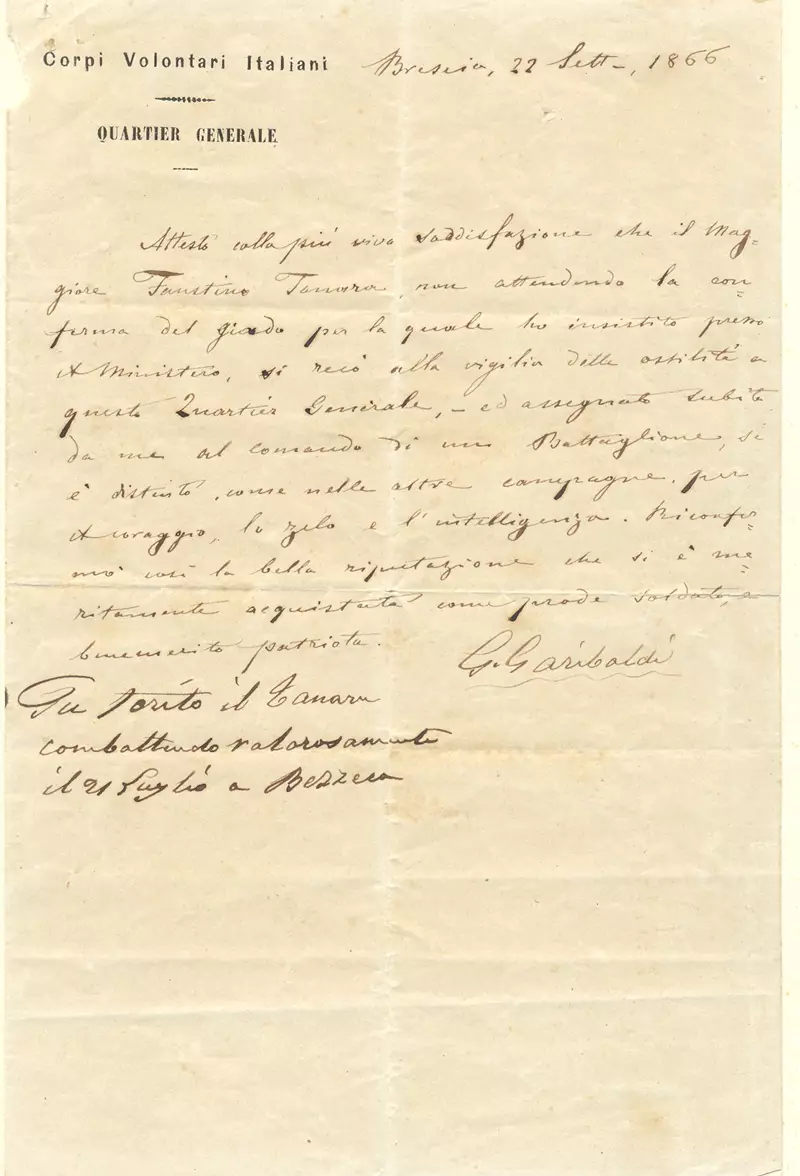 Corpi Volontari Italiani
Brescia, 22 Sett–, 1866
QUARTIER GENERALE
Attesto colla più viva soddisfazione che il Mag=
giore Faustino Tanara, non attendendo la con=
ferma del grado per la quale ho insistito presso
il Ministero, si recò alla vigilia delle ostilità a
questo Quartier Generale, – ed assegnato subito
da me al comando di un Battaglione, si
è distinto, come nelle altre campagne, per
il coraggio, lo zelo e l'intelligenza. Riconfer=
mò così la bella riputazione che si è me=
ritamente acquistata come prode soldato, e
benemerito patriota.
G. Garibaldi
Fu ferito il Tanara
combattendo valorosamente
il 21 Luglio a Bezzecca